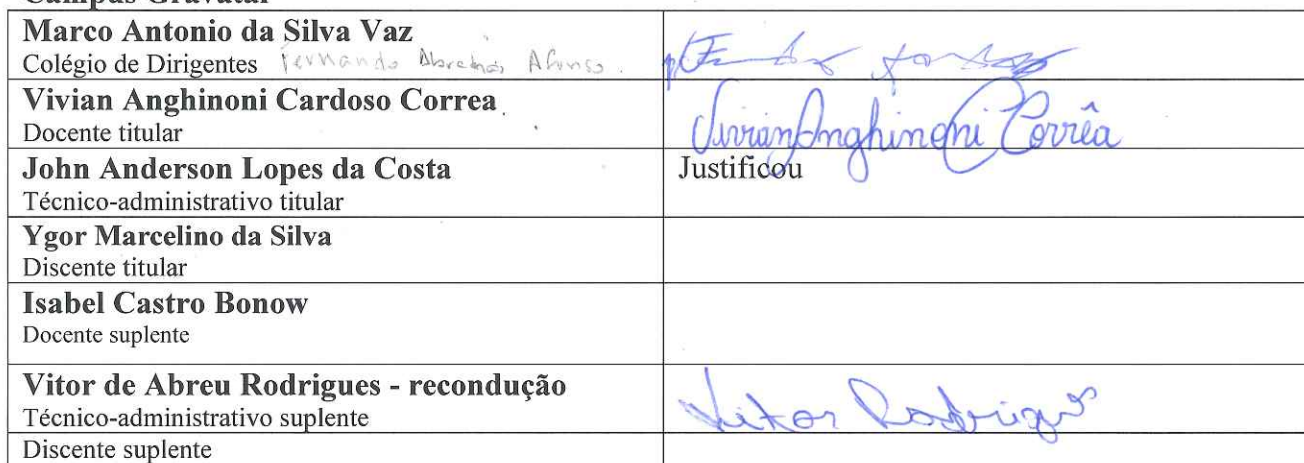 Campus Gravataí
Marco Antonio da Silva Vaz
Colégio de Dirigentes Fernando Abrahão Afonso.
Vivian Anghinoni Cardoso Correa
Docente titular
Vivian Anghinoni Corrêa
John Anderson Lopes da Costa
Justificou
Técnico-administrativo titular
Ygor Marcelino da Silva
Discente titular
Isabel Castro Bonow
Docente suplente
Vitor de Abreu Rodrigues - recondução
Técnico-administrativo suplente
Vitor Rodrigues
Discente suplente